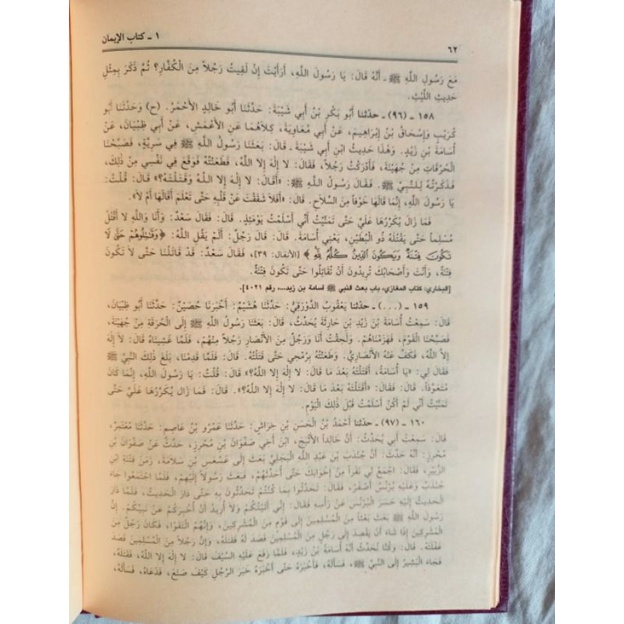 ٦٢
١ ـ كتاب الإيمان
مَعَ رَسُولِ اللَّهِ ﷺ ـ أَنَّهُ قَالَ: يَا رَسُولَ اللَّهِ، أَرَأَيْتَ إِنْ لَقِيتُ رَجُلاً مِنَ الْكُفَّارِ؟ ثُمَّ ذَكَرَ بِمِثْلِ
حَدِيثِ اللَّيْثِ.
١٥٨ ـ (٩٦) ـ حدّثنا أَبُو بَكْرِ بْنُ أَبِي شَيْبَةَ: حَدَّثَنَا أَبُو خَالِدٍ الأَحْمَرُ. (ح) وَحَدَّثَنَا أَبُو
كُرَيْبٍ وَإِسْحَاقُ بْنُ إِبْرَاهِيمَ، عَنْ أَبِي مُعَاوِيَةَ، كِلاَهُمَا عَنِ الأَعْمَشِ، عَنْ أَبِي ظِبْيَانَ، عَنْ
أُسَامَةَ بْنِ زَيْدٍ. وَهَٰذَا حَدِيثُ ابْنِ أَبِي شَيْبَةَ ـ قَالَ: بَعَثَنَا رَسُولُ اللَّهِ ﷺ فِي سَرِيَّةٍ، فَصَبَّحْنَا
الْحُرَقَاتِ مِنْ جُهَيْنَةَ، فَأَدْرَكْتُ رَجُلاً، فَقَالَ: لاَ إِلَهَ إِلاَّ اللَّهُ، فَطَعَنْتُهُ فَوَقَعَ فِي نَفْسِي مِنْ ذَلِكَ،
فَذَكَرْتُهُ لِلنَّبِيِّ ﷺ. فَقَالَ رَسُولُ اللَّهِ ﷺ: «أَقَالَ: لاَ إِلَهَ إِلاَّ اللَّهُ وَقَتَلْتَهُ؟» قَالَ: قُلْتُ:
يَا رَسُولَ اللَّهِ، إِنَّمَا قَالَهَا خَوْفاً مِنَ السِّلاَحِ. قَالَ: «أَفَلاَ شَقَقْتَ عَنْ قَلْبِهِ حَتَّى تَعْلَمَ أَقَالَهَا أَمْ لاَ».
فَمَا زَالَ يُكَرِّرُهَا عَلَيَّ حَتَّى تَمَنَّيْتُ أَنِّي أَسْلَمْتُ يَوْمَئِذٍ. قَالَ: فَقَالَ سَعْدٌ: وَأَنَا وَاللَّهِ لاَ أَقْتُلُ
مُسْلِماً حَتَّى يَقْتُلَهُ ذُو الْبُطَيْنِ، يَعْنِي أُسَامَةَ. قَالَ: قَالَ رَجُلٌ: أَلَمْ يَقُلِ اللَّهُ: ﴿وَقَٰتِلُوهُمْ حَتَّىٰ لَا
تَكُونَ فِتْنَةٌ وَيَكُونَ الدِّينُ كُلُّهُ لِلَّهِ﴾ [الأنفال: ٣٩]. فَقَالَ سَعْدٌ: قَدْ قَاتَلْنَا حَتَّى لاَ تَكُونَ
فِتْنَةٌ، وَأَنْتَ وَأَصْحَابُكَ تُرِيدُونَ أَنْ تُقَاتِلُوا حَتَّى تَكُونَ فِتْنَةٌ.
[البخاري: كتاب المغازي، باب بعث النبي ﷺ أسامة بن زيد...، رقم ٤٠٢١]
١٥٩ ـ (...) ـ حدّثنا يَعْقُوبُ الدَّوْرَقِيُّ: حَدَّثَنَا هُشَيْمٌ: أَخْبَرَنَا حُصَيْنٌ: حَدَّثَنَا أَبُو ظِبْيَانَ،
قَالَ: سَمِعْتُ أُسَامَةَ بْنَ زَيْدِ بْنِ حَارِثَةَ يُحَدِّثُ، قَالَ: بَعَثَنَا رَسُولُ اللَّهِ ﷺ إِلَى الْحُرَقَةِ مِنْ جُهَيْنَةَ،
فَصَبَّحْنَا الْقَوْمَ، فَهَزَمْنَاهُمْ. وَلَحِقْتُ أَنَا وَرَجُلٌ مِنَ الأَنْصَارِ رَجُلاً مِنْهُمْ، فَلَمَّا غَشِينَاهُ قَالَ: لاَ إِلَهَ
إِلاَّ اللَّهُ، فَكَفَّ عَنْهُ الأَنْصَارِيُّ. وَطَعَنْتُهُ بِرُمْحِي حَتَّى قَتَلْتُهُ. قَالَ: فَلَمَّا قَدِمْنَا، بَلَغَ ذَلِكَ النَّبِيَّ ﷺ
فَقَالَ لِي: «يَا أُسَامَةُ، أَقَتَلْتَهُ بَعْدَ مَا قَالَ: لاَ إِلَهَ إِلاَّ اللَّهُ؟» قَالَ: قُلْتُ: يَا رَسُولَ اللَّهِ، إِنَّمَا كَانَ
مُتَعَوِّذاً. قَالَ: فَقَالَ: «أَقَتَلْتَهُ بَعْدَ مَا قَالَ: لاَ إِلَهَ إِلاَّ اللَّهُ؟». قَالَ: فَمَا زَالَ يُكَرِّرُهَا عَلَيَّ حَتَّى
تَمَنَّيْتُ أَنِّي لَمْ أَكُنْ أَسْلَمْتُ قَبْلَ ذَلِكَ الْيَوْمِ.
١٦٠ ـ (٩٧) ـ حدّثنا أَحْمَدُ بْنُ الْحَسَنِ بْنِ خِرَاشٍ: حَدَّثَنَا عَمْرُو بْنُ عَاصِمٍ: حَدَّثَنَا مُعْتَمِرٌ،
قَالَ: سَمِعْتُ أَبِي يُحَدِّثُ: أَنَّ خَالِداً الأَثْبَجَ، ابْنَ أَخِي صَفْوَانَ بْنِ مُحْرِزٍ، حَدَّثَ عَنْ صَفْوَانَ بْنِ
مُحْرِزٍ: أَنَّهُ حَدَّثَ: أَنَّ جُنْدَبَ بْنَ عَبْدِ اللَّهِ الْبَجَلِيَّ بَعَثَ إِلَى عَسْعَسِ بْنِ سَلاَمَةَ، زَمَنَ فِتْنَةِ ابْنِ
الزُّبَيْرِ، فَقَالَ: اجْمَعْ لِي نَفَراً مِنْ إِخْوَانِكَ حَتَّى أُحَدِّثَهُمْ، فَبَعَثَ رَسُولاً إِلَيْهِمْ، فَلَمَّا اجْتَمَعُوا جَاءَ
جُنْدَبٌ وَعَلَيْهِ بُرْنُسٌ أَصْفَرُ، فَقَالَ: تَحَدَّثُوا بِمَا كُنْتُمْ تَحَدَّثُونَ بِهِ حَتَّى دَارَ الْحَدِيثُ، فَلَمَّا دَارَ
الْحَدِيثُ إِلَيْهِ حَسَرَ الْبُرْنُسَ عَنْ رَأْسِهِ فَقَالَ: إِنِّي أَتَيْتُكُمْ وَلاَ أُرِيدُ أَنْ أُخْبِرَكُمْ عَنْ نَبِيِّكُمْ. إِنَّ
رَسُولَ اللَّهِ ﷺ بَعَثَ بَعْثاً مِنَ الْمُسْلِمِينَ إِلَى قَوْمٍ مِنَ الْمُشْرِكِينَ، وَإِنَّهُمُ الْتَقَوْا، فَكَانَ رَجُلٌ مِنَ
الْمُشْرِكِينَ إِذَا شَاءَ أَنْ يَقْصِدَ إِلَى رَجُلٍ مِنَ الْمُسْلِمِينَ قَصَدَ لَهُ فَقَتَلَهُ، وَإِنَّ رَجُلاً مِنَ الْمُسْلِمِينَ قَصَدَ
غَفْلَتَهُ. قَالَ: وَكُنَّا نُحَدَّثُ أَنَّهُ أُسَامَةُ بْنُ زَيْدٍ، فَلَمَّا رَفَعَ عَلَيْهِ السَّيْفَ قَالَ: لاَ إِلَهَ إِلاَّ اللَّهُ، فَقَتَلَهُ،
فَجَاءَ الْبَشِيرُ إِلَى النَّبِيِّ ﷺ، فَسَأَلَهُ، فَأَخْبَرَهُ حَتَّى أَخْبَرَهُ خَبَرَ الرَّجُلِ كَيْفَ صَنَعَ، فَدَعَاهُ، فَسَأَلَهُ،